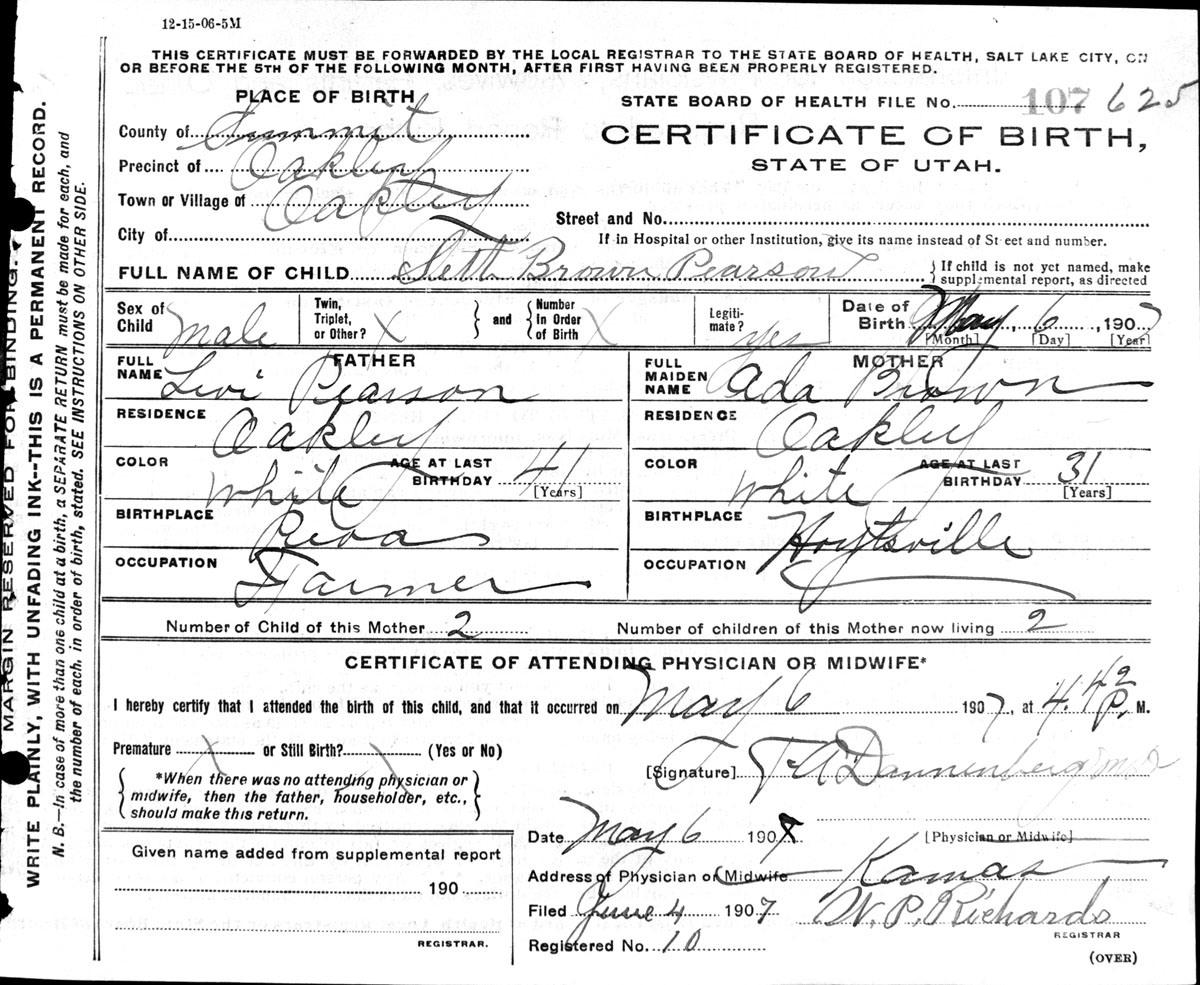 12-15-06-5M
THIS CERTIFICATE MUST BE FORWARDED BY THE LOCAL REGISTRAR TO THE STATE BOARD OF HEALTH, SALT LAKE CITY, ON
OR BEFORE THE 5TH OF THE FOLLOWING MONTH, AFTER FIRST HAVING BEEN PROPERLY REGISTERED.
PLACE OF BIRTH
STATE BOARD OF HEALTH FILE No. 107 625
County of Summit
CERTIFICATE OF BIRTH,
Precinct of Oakley
STATE OF UTAH.
Town or Village of Oakley
Street and No.
City of
If in Hospital or other Institution, give its name instead of Street and number.
FULL NAME OF CHILD Seth Brown Pearson } If child is not yet named, make
supplemental report, as directed
Sex of Child Male
Twin, Triplet, or Other? X } and { Number In Order of Birth X
Legitimate? yes
Date of Birth May, 6, 1907
[Month] [Day] [Year]
FATHER
FULL NAME Levi Pearson
RESIDENCE Oakley
COLOR White AGE AT LAST BIRTHDAY 41
[Years]
BIRTHPLACE
OCCUPATION Farmer
MOTHER
FULL MAIDEN NAME Ada Brown
RESIDENCE Oakley
COLOR White AGE AT LAST BIRTHDAY 31
[Years]
BIRTHPLACE Hoytsville
OCCUPATION
Number of Child of this Mother 2 Number of children of this Mother now living 2
CERTIFICATE OF ATTENDING PHYSICIAN OR MIDWIFE*
I hereby certify that I attended the birth of this child, and that it occurred on May 6 1907, at 4.42 P. M.
Premature X or Still Birth? X (Yes or No)
{ *When there was no attending physician or
midwife, then the father, householder, etc.,
should make this return. }
[Signature] Dannenberg
Date May 6 190
[Physician or Midwife]
Given name added from supplemental report
Address of Physician or Midwife Kamas
190
Filed June 4 1907 W. P. Richards
REGISTRAR.
REGISTRAR
Registered No. 10
(OVER)
MARGIN RESERVED FOR BINDING.
WRITE PLAINLY, WITH UNFADING INK--THIS IS A PERMANENT RECORD.
N. B.—In case of more than one child at a birth, a SEPARATE RETURN must be made for each, and
the number of each, in order of birth, stated. SEE INSTRUCTIONS ON OTHER SIDE.